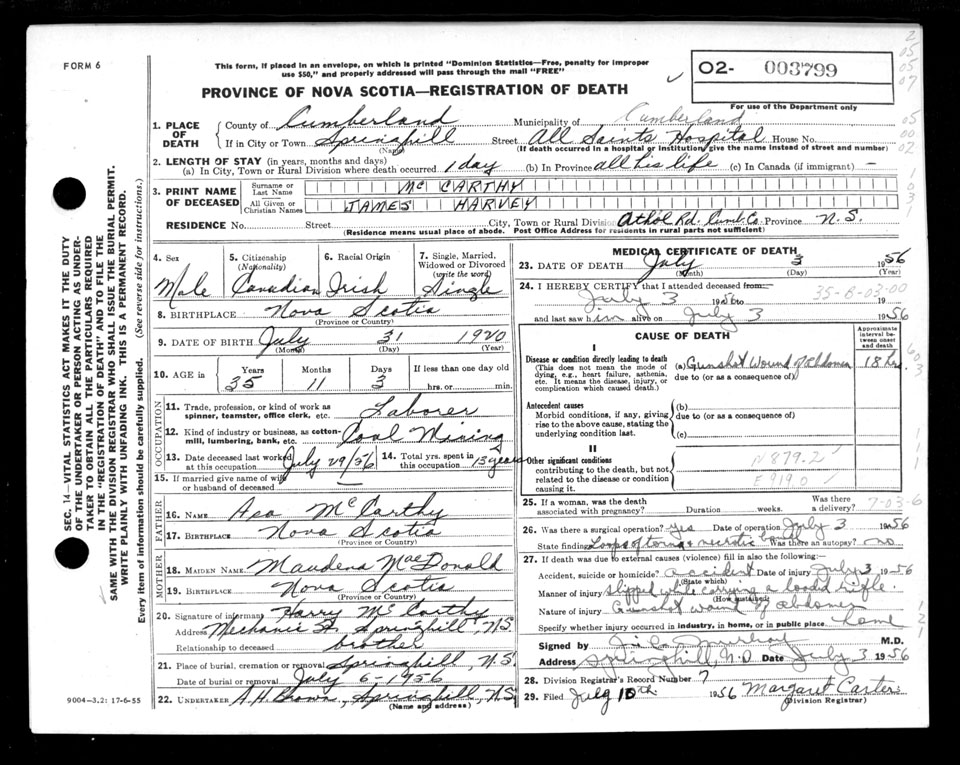 FORM 6
This form, if placed in an envelope, on which is printed "Dominion Statistics—Free, penalty for improper
use $50," and properly addressed will pass through the mail "FREE"
PROVINCE OF NOVA SCOTIA—REGISTRATION OF DEATH
02- 003799
For use of the Department only
1. PLACE OF DEATH
County of Cumberland Municipality of Cumberland
If in City or Town Springhill Street All Saints Hospital House No.
(Name) (If death occurred in a hospital or institution, give the name instead of street and number)
2. LENGTH OF STAY (in years, months and days)
(a) In City, Town or Rural Division where death occurred 1 day (b) In Province all his life (c) In Canada (if immigrant) —
3. PRINT NAME OF DECEASED
Surname or Last Name McCARTHY
All Given or Christian Names JAMES HARVEY
RESIDENCE No. Street City, Town or Rural Division Athol Rd. Cumb. Co. Province N. S.
(Residence means usual place of abode. Post Office Address for residents in rural parts not sufficient)
4. Sex Male
5. Citizenship (Nationality) Canadian
6. Racial Origin Irish
7. Single, Married, Widowed or Divorced (write the word) Single
8. BIRTHPLACE Nova Scotia
(Province or Country)
9. DATE OF BIRTH July 31 1920
(Month) (Day) (Year)
10. AGE in Years 35 Months 11 Days 3 If less than one day old
hrs. or min.
OCCUPATION
11. Trade, profession, or kind of work as spinner, teamster, office clerk, etc. Laborer
12. Kind of industry or business, as cotton-mill, lumbering, bank, etc. Coal Mining
13. Date deceased last worked at this occupation July 29/56 14. Total yrs. spent in this occupation 15 years
15. If married give name of wife or husband of deceased
FATHER
16. NAME Asa McCarthy
17. BIRTHPLACE Nova Scotia
(Province or Country)
MOTHER
18. MAIDEN NAME Maudena MacDonald
19. BIRTHPLACE Nova Scotia
(Province or Country)
20. Signature of informant Harry McCarthy
Address Mechanic St. Springhill, N.S.
Relationship to deceased brother
21. Place of burial, cremation or removal Springhill, N.S.
Date of burial or removal July 6-1956
22. UNDERTAKER A.H. Brown, Springhill, N.S.
(Name and address)
9004—3.2: 17-6-55
MEDICAL CERTIFICATE OF DEATH
23. DATE OF DEATH July 3 1956
(Month) (Day) (Year)
24. I HEREBY CERTIFY that I attended deceased from
July 3 1956 to 19
35-8-03-00
and last saw him alive on July 3 1956
CAUSE OF DEATH
Approximate interval between onset and death
I
Disease or condition directly leading to death
(This does not mean the mode of dying, e.g., heart failure, asthenia, etc. It means the disease, injury, or complication which caused death.)
(a) Gunshot Wound of Abdomen 18 hrs.
due to (or as a consequence of)
Antecedent causes
Morbid conditions, if any, giving rise to the above cause, stating the underlying condition last.
(b)
due to (or as a consequence of)
(c)
II
Other significant conditions
contributing to the death, but not related to the disease or condition causing it.
N 879.2
E 919.0
25. If a woman, was the death associated with pregnancy? Duration weeks. Was there a delivery? 7-03-6
26. Was there a surgical operation? Yes Date of operation July 3 1956
State findings Loops of torn & necrotic bowel Was there an autopsy? no
27. If death was due to external causes (violence) fill in also the following:—
Accident, suicide or homicide? accident Date of injury July 3 1956
(State which)
Manner of injury slipped while carrying a loaded rifle
(How sustained)
Nature of injury Gunshot wound of abdomen
Specify whether injury occurred in industry, in home, or in public place. home
Signed by M.D.
Address Springhill, N.S. Date July 3 1956
28. Division Registrar's Record Number 7
29. Filed July 10th 1956 Margaret Carter
(Division Registrar)
SEC. 14—VITAL STATISTICS ACT MAKES IT THE DUTY
OF THE UNDERTAKER OR PERSON ACTING AS UNDER-
TAKER TO OBTAIN ALL THE PARTICULARS REQUIRED
IN THE "REGISTRATION OF DEATH" AND TO FILE THE
SAME WITH THE DIVISION REGISTRAR WHO SHALL ISSUE THE BURIAL PERMIT.
WRITE PLAINLY WITH UNFADING INK. THIS IS A PERMANENT RECORD.
Every item of information should be carefully supplied. (See reverse side for instructions.)